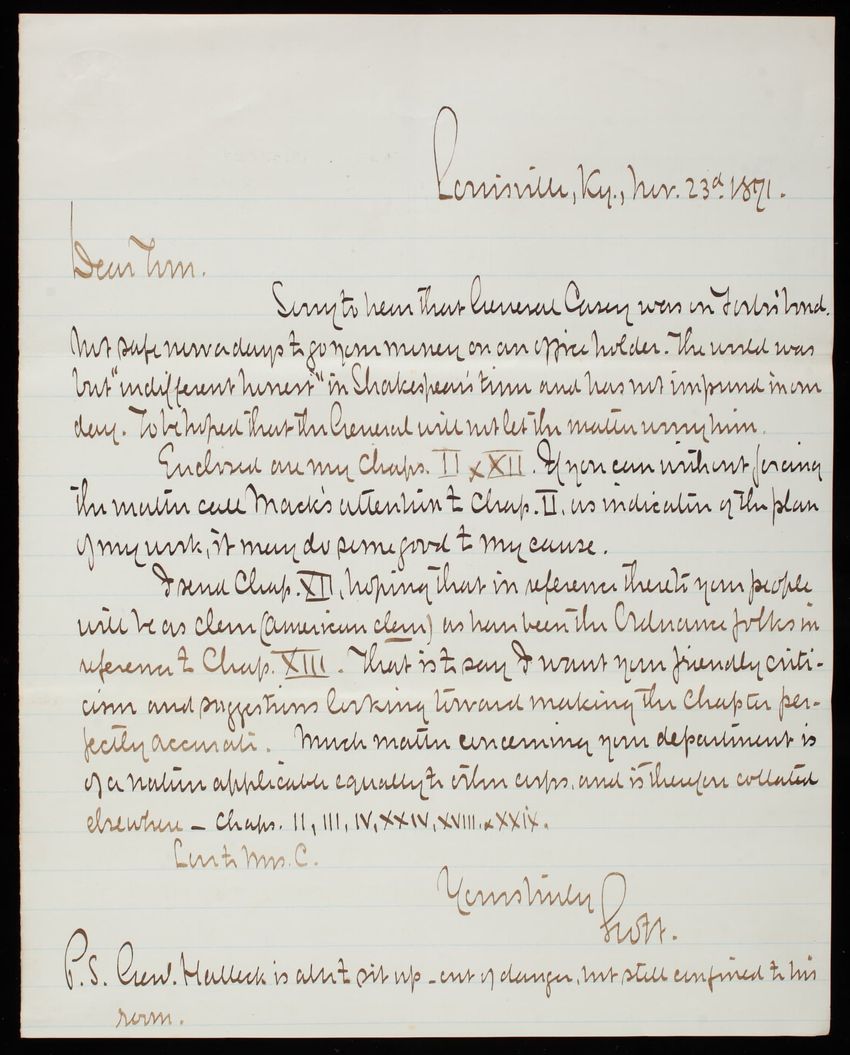 Louisville, Ky., Nov. 23d. 1871.
Dear Tom.
Sorry to hear that General Casey was on bond.
Not safe now a days to go your money on an office holder. The world was
but "indifferent honest" in Shakespear's time and has not improved in our
day. To be hoped that the General will not let the matter worry him.
Enclosed are my Chaps. II & XII. If you can without forcing
the matter call Mack's attention to Chap. II, as indicative of the plan
of my work, it may do some good to my cause.
I send Chap. XII, hoping that in reference thereto your people
will be as clever (american clever) as have been the Ordnance folks in
reference to Chap. XIII. That is to say I want your friendly criti-
cism and suggestions looking toward making the Chapter per-
fectly accurate. Much matter concerning your department is
of a nature applicable equally to other corps, and is therefore collated
elsewhere - Chaps. II, III, IV, XXIV, XVIII. & XXIX.
Love to Mrs. C.
Yours truly
Scott.
P.S. Genl. Halleck is able to sit up - out of danger, but still confined to his
room.